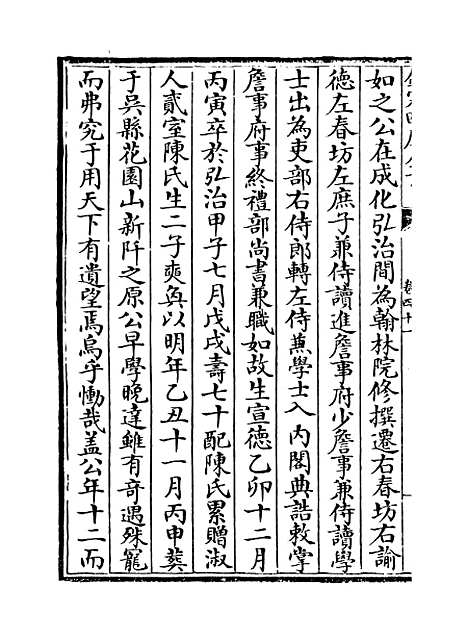 如之公在成化弘治間為翰林院修撰遷右春坊右諭
德左春坊左庶子兼侍讀進詹事府少詹事兼侍讀學
士出為吏部右侍郎轉左侍兼學士入 內閣典誥敕掌
詹事府事終禮部尚書兼職如故生宣德乙卯十二月
丙寅卒於弘治甲子七月戊戌壽七十配陳氏累贈淑
人貳室陳氏生二子奭奐以明年乙丑十一月丙申葬
于吳縣花園山新阡之原公早學晚達雖有奇遇殊寵
而弗究于用天下有遺望焉烏乎慟哉盖公年十二而